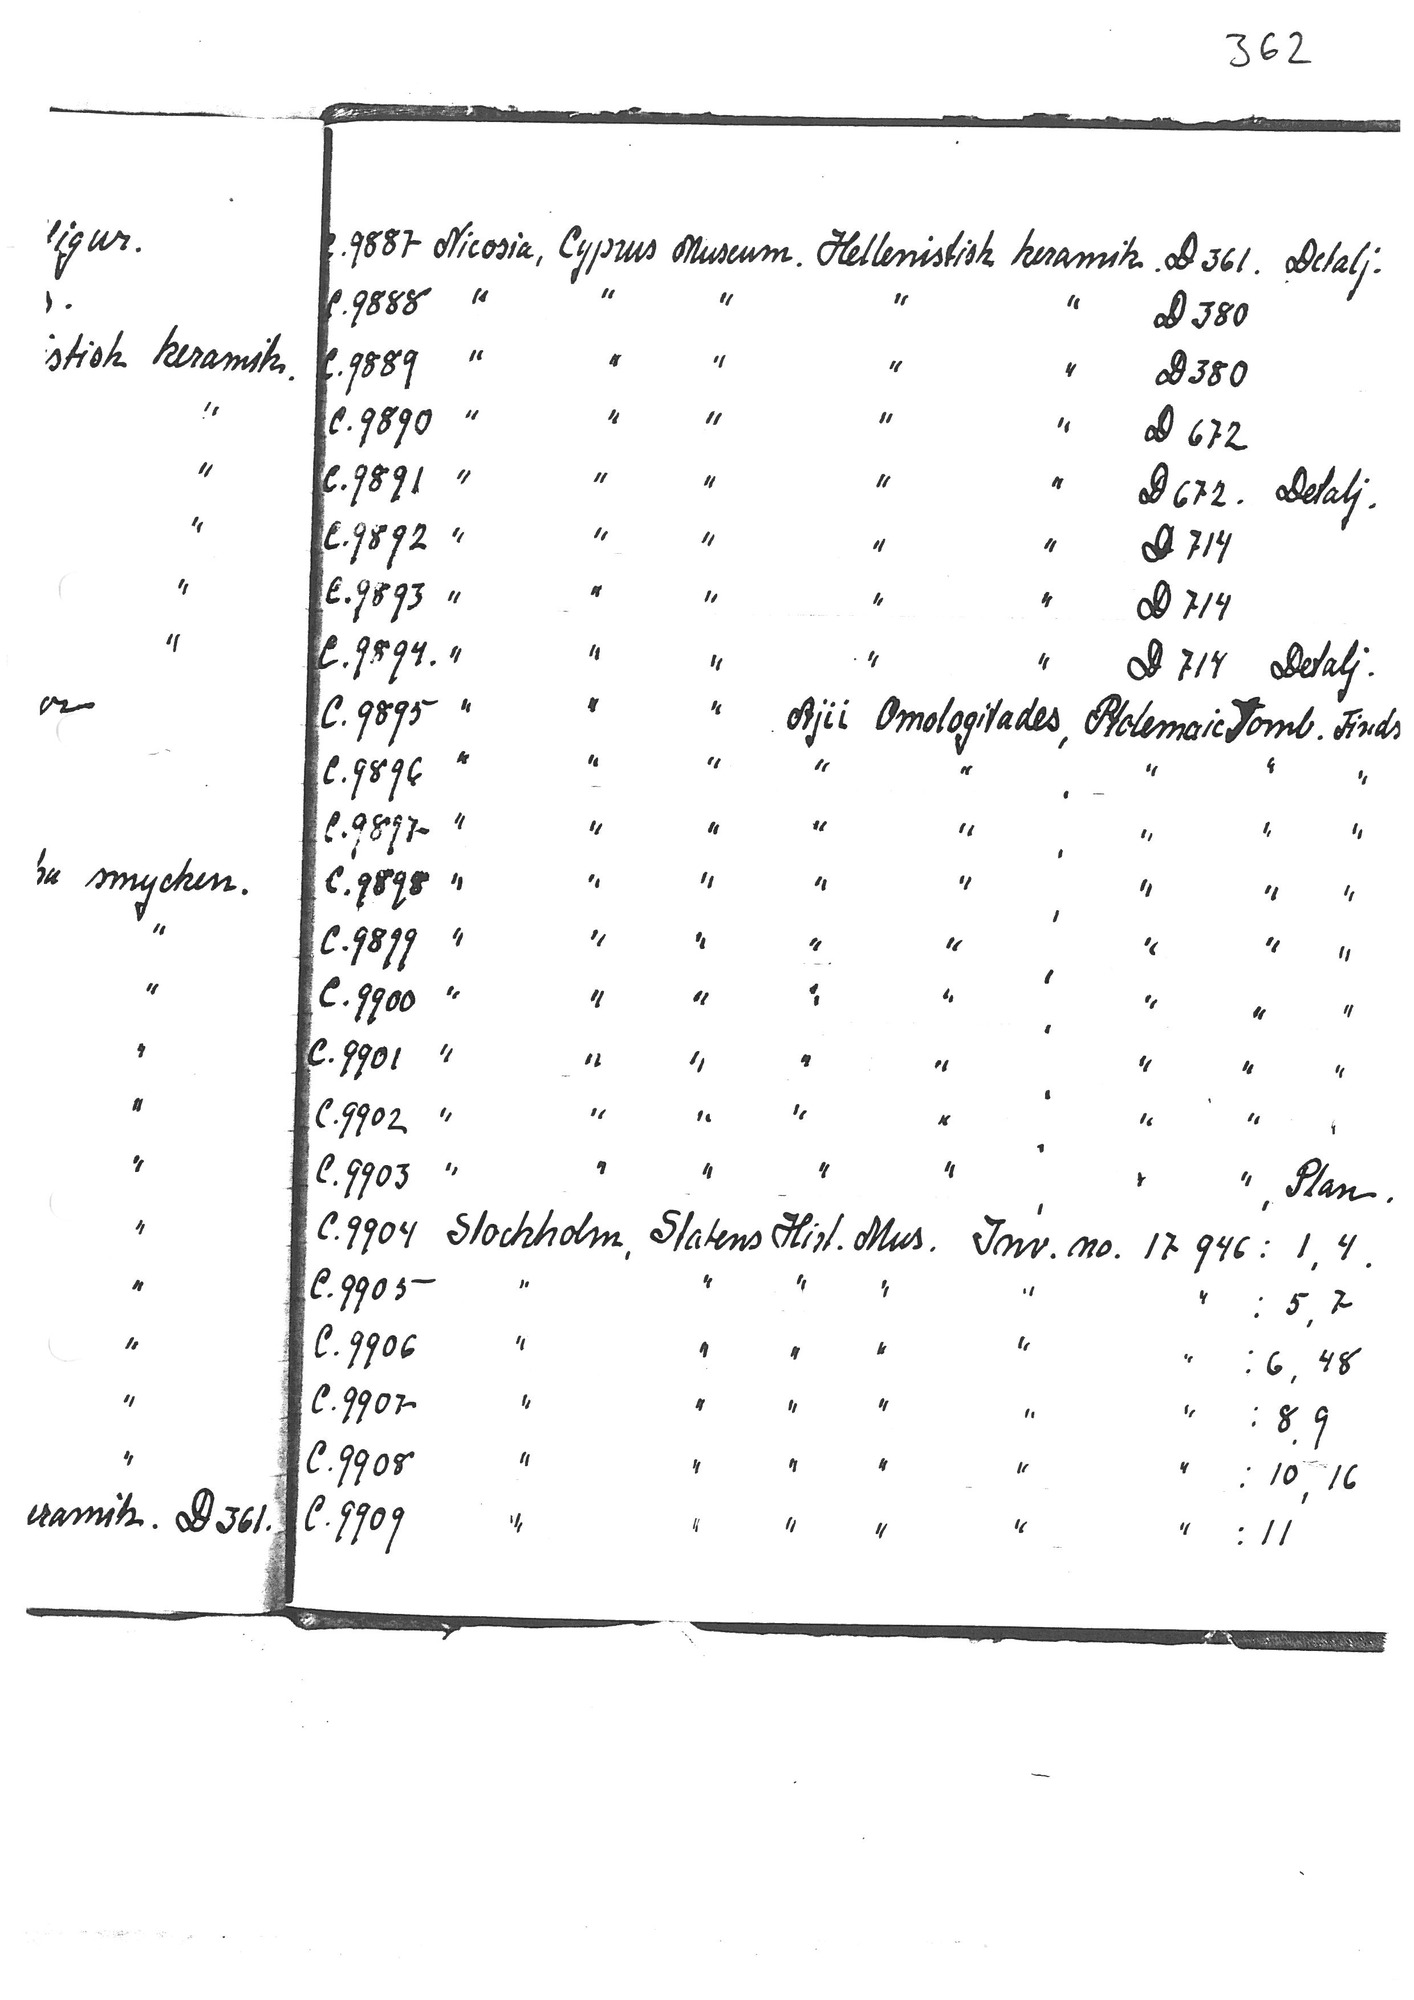 362
C.9887 Nicosia, Cyprus Museum. Hellenistisk keramik. D 361. Detalj.
C.9888 " " " " " D 380
C.9889 " " " " " D 380
C.9890 " " " " " D 672
C.9891 " " " " " D 672. Detalj.
C.9892 " " " " " D 714
C.9893 " " " " " D 714
C.9894. " " " " " D 714 Detalj.
C.9895 " " " Ajii Omologitades, Ptolemaic Tomb. Finds
C.9896 " " " " " , " " "
C.9897 " " " " " , " " "
C.9898 " " " " " , " " "
C.9899 " " " " " , " " "
C.9900 " " " " " , " " "
C.9901 " " " " " , " " "
C.9902 " " " " " , " " "
C.9903 " " " " " , " " , Plan.
C.9904 Stockholm, Statens Hist. Mus. Inv. no. 17 946 : 1, 4.
C.9905 " " " " " " : 5, 7
C.9906 " " " " " " : 6, 48
C.9907 " " " " " " : 8, 9
C.9908 " " " " " " : 10, 16
C.9909 " " " " " " : 11
igur.
istisk keramik.
"
"
"
"
"
or
smycken.
"
"
"
"
"
"
"
"
"
"
eramik. D 361.